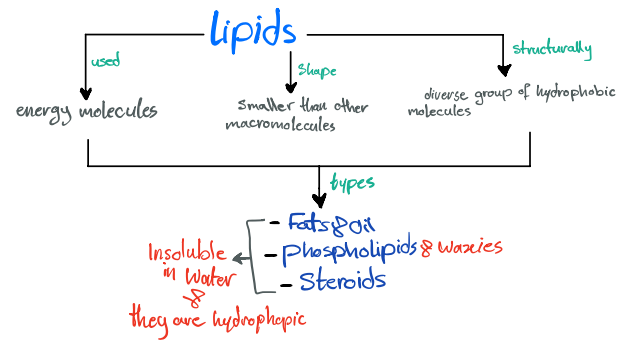 Lipids
used
shape
structurally
energy molecules
smaller than other
macromolecules
diverse group of hydrophobic
molecules
types
- Fats & oil
- phospholipids & waxies
- Steroids
Insoluble
in water
&
they are hydrophopic